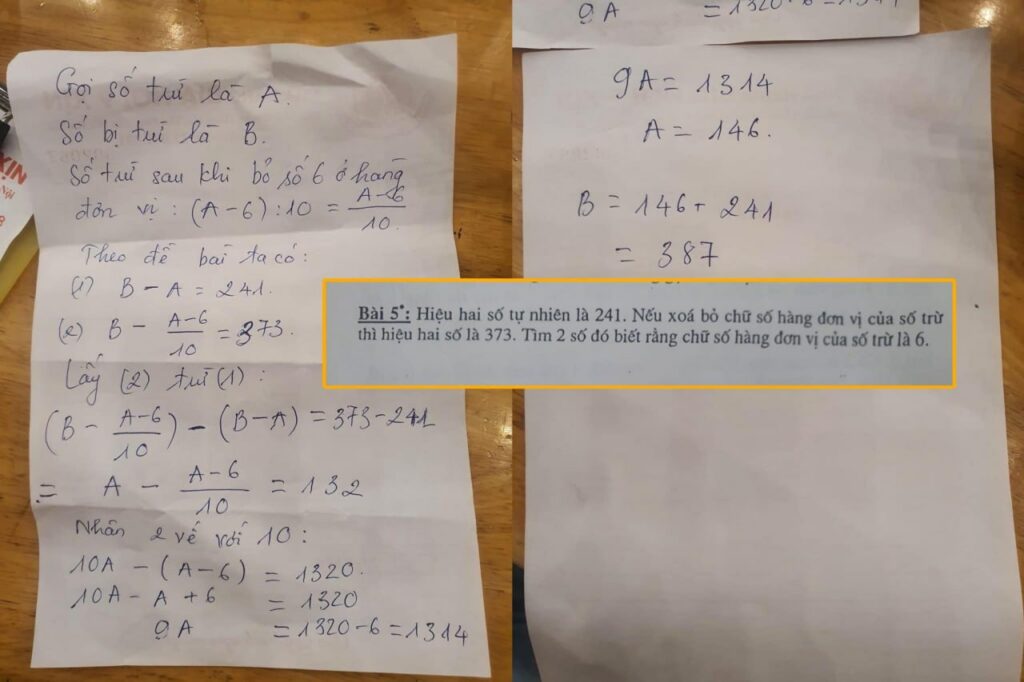 Gọi số trừ là A.
Số bị trừ là B.
Số trừ sau khi bỏ số 6 ở hàng
đơn vị : (A-6) : 10 = A-6/10.
Theo đề bài ta có :
(1) B - A = 241.
(2) B - A-6/10 = 373.
Lấy (2) trừ (1) :
(B - A-6/10) - (B-A) = 373-241
= A - A-6/10 = 132
Nhân 2 vế với 10 :
10A - (A-6) = 1320.
10A - A + 6 = 1320
9A = 1320-6 = 1314
9A = 1320-6=1314
9A = 1314
A = 146.
B = 146 + 241
= 387
Bài 5*: Hiệu hai số tự nhiên là 241. Nếu xoá bỏ chữ số hàng đơn vị của số trừ
thì hiệu hai số là 373. Tìm 2 số đó biết rằng chữ số hàng đơn vị của số trừ là 6.